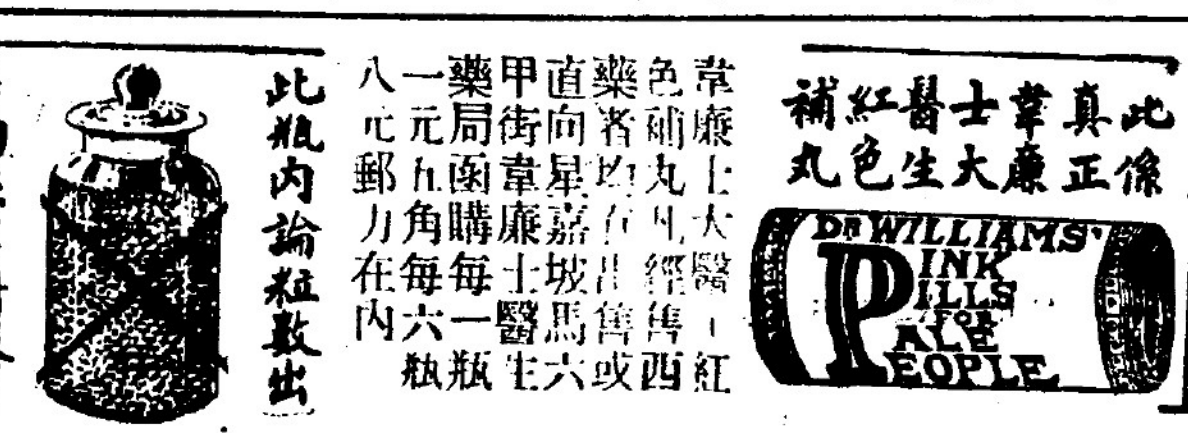 此係
真正
韋廉
士大
醫生
紅色
補丸
DR WILLIAMS'
PINK
PILLS
FOR
PALE
PEOPLE
韋廉士大醫生紅
色補丸凡經售西
藥者均有出售或
直向星嘉坡馬六
甲街韋廉士醫生
藥局函購每一瓶
一元五角每六瓶
八元郵力在內
此瓶內論粒數出